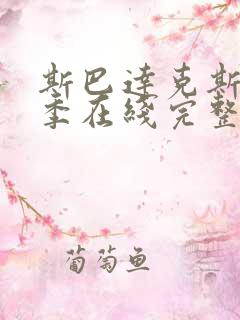 斯巴达克斯
季在线完整
葡萄鱼